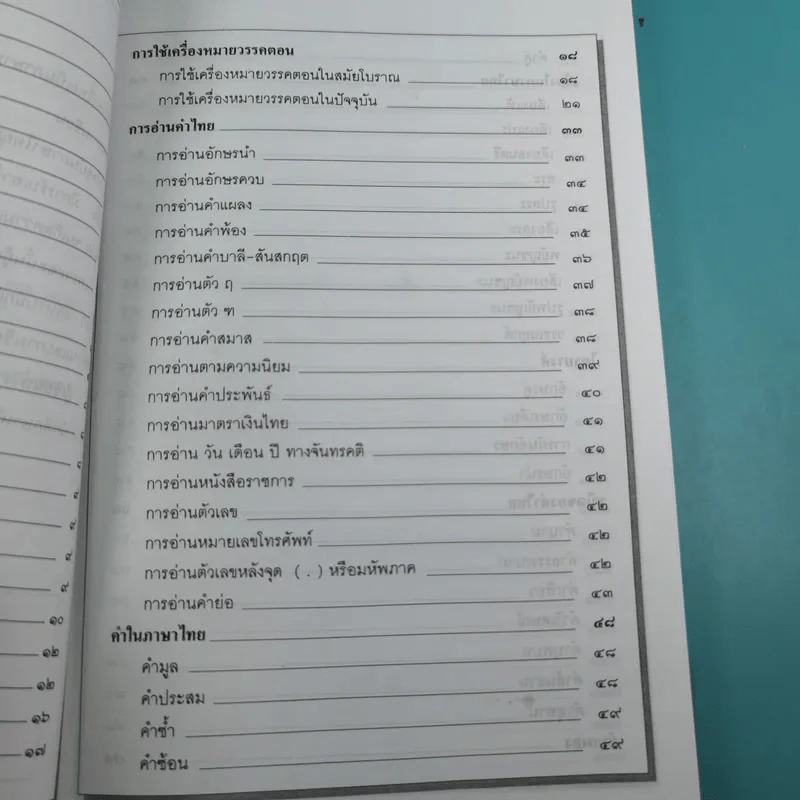 การใช้เครื่องหมายวรรคตอน ๑๘
การใช้เครื่องหมายวรรคตอนในสมัยโบราณ ๑๘
การใช้เครื่องหมายวรรคตอนในปัจจุบัน ๒๑
การอ่านคำไทย ๓๓
การอ่านอักษรนำ ๓๓
การอ่านอักษรควบ ๓๔
การอ่านคำแผลง ๓๔
การอ่านคำพ้อง ๓๕
การอ่านคำบาลี-สันสกฤต ๓๖
การอ่านตัว ฤ ๓๗
การอ่านตัว ฑ ๓๘
การอ่านคำสมาส ๓๘
การอ่านตามความนิยม ๓๙
การอ่านคำประพันธ์ ๔๐
การอ่านมาตราเงินไทย ๔๑
การอ่าน วัน เดือน ปี ทางจันทรคติ ๔๑
การอ่านหนังสือราชการ ๔๒
การอ่านตัวเลข ๔๒
การอ่านหมายเลขโทรศัพท์ ๔๒
การอ่านตัวเลขหลังจุด (.) หรือมหัพภาค ๔๒
การอ่านคำย่อ ๔๓
คำในภาษาไทย ๔๘
คำมูล ๔๘
คำประสม ๔๘
คำซ้ำ ๔๙
คำซ้อน ๔๙
๙
๑๐
๑๒
๑๒
๑๖
๑๗